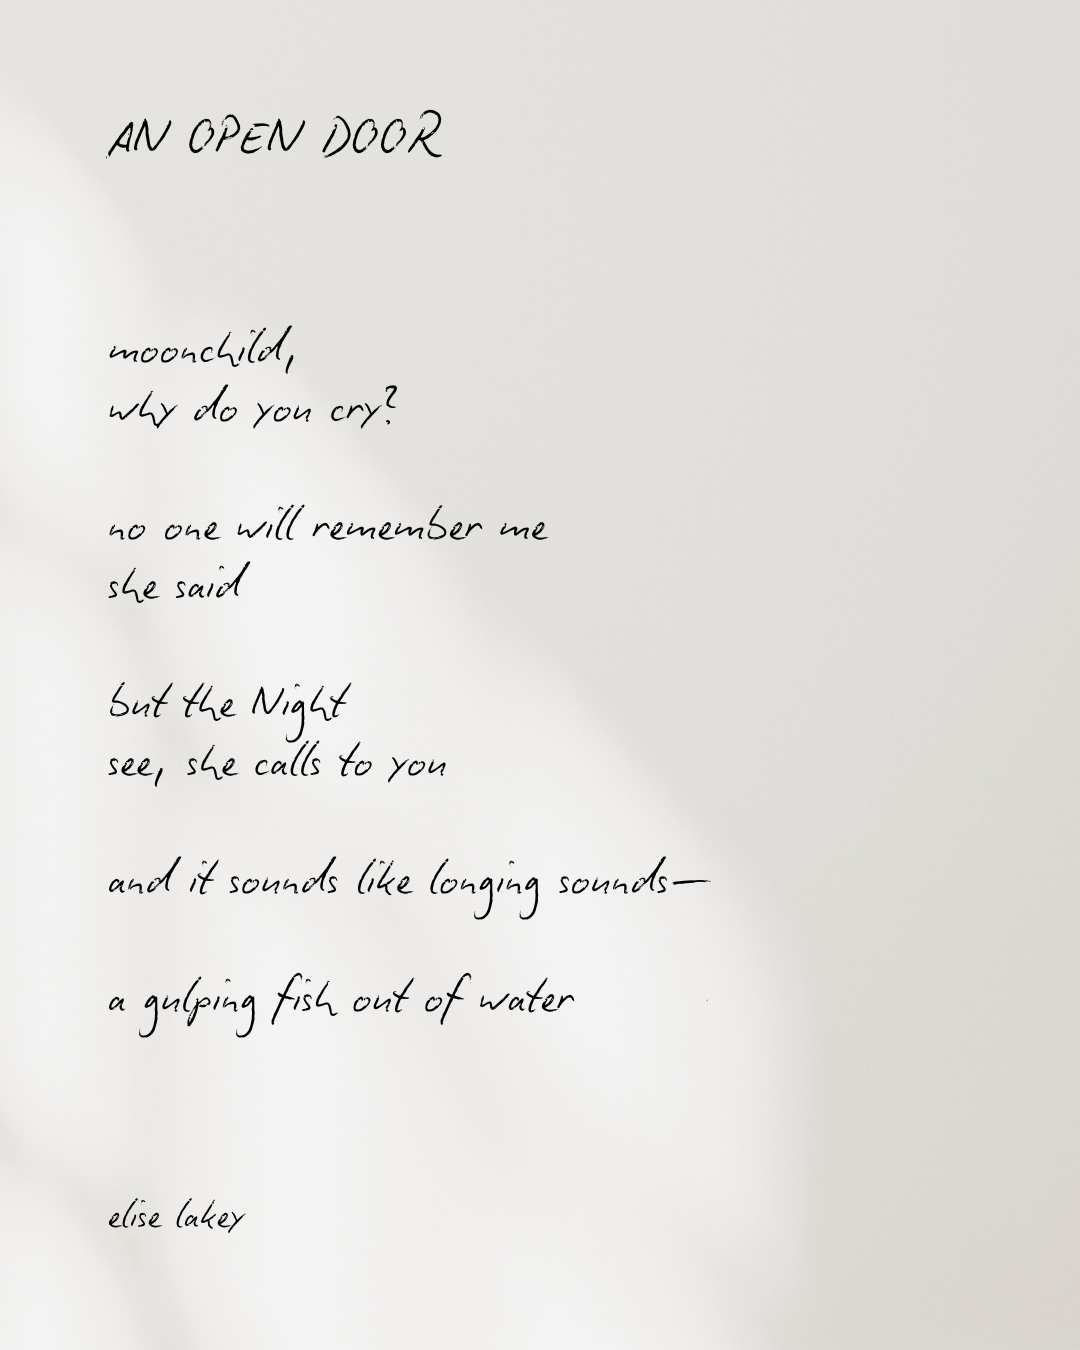 AN OPEN DOOR
moonchild,
why do you cry?
no one will remember me
she said
but the Night
see, she calls to you
and it sounds like longing sounds—
a gulping fish out of water
elise lakey